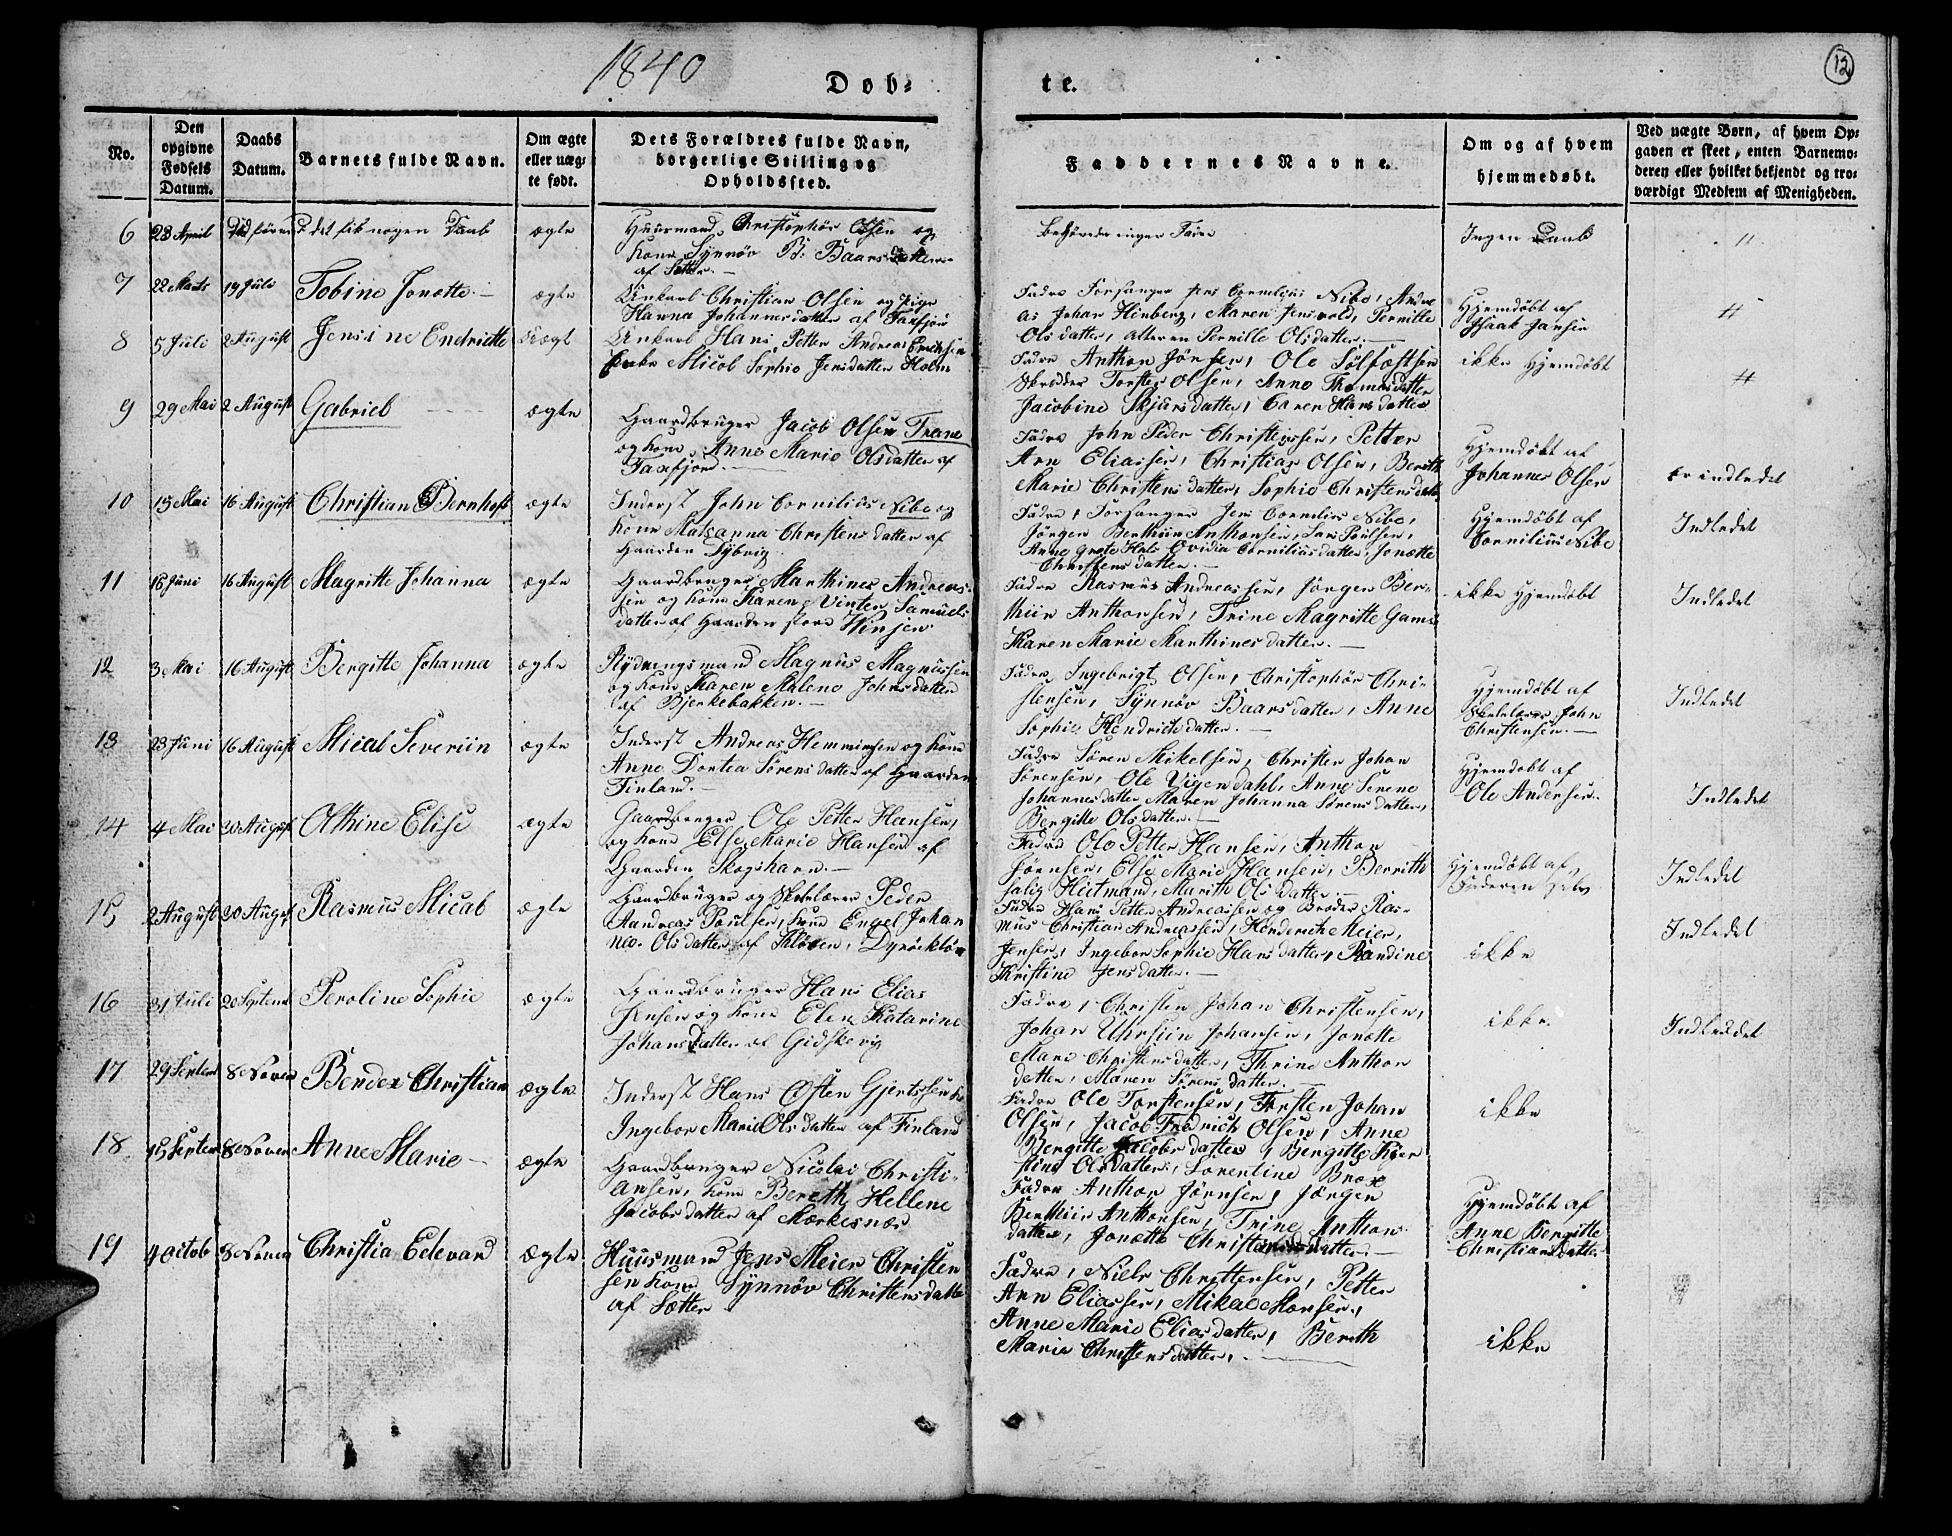 1840
12
Døb-
te.
No.
Den opgivne Fødsels Datum.
Daabs Datum.
Barnets fulde Navn.
Om ægte eller uæg-te født.
Dets Forældres fulde Navn, borgerlige Stilling og Opholdssted.
Faddernes Navne.
Om og af hvem hjemmedøbt.
Ved uægte Børn, af hvem Op-gaven er skeet, enten Barnemo-deren eller hvilket bekjendt og tro-værdigt Medlem af Menigheden.
6 23 April det fik nogen Daab ægte
Huusmand Christophør Olsen og
Kone Synnøv B: Baarsdatter
af Sætter.
Ingen Daab
"
7 22 Marts 19 Juli Tobine Jonette ægte
Unkarl Christian Olsen og pige
Hanna Johannesdatter af Taxfjor
Fadre Forsanger Jens Cornelius Nibe, Andre
as Johan Hinberg, Maren Jensvold, Pernille
Olsdatter, Pernille Olsdatter.
Hjemdøbt af
Isaak Jansen
"
8 5 Juli 2 August Jensine Endriette uægt
Unkarl Hans Petter Andreas Erichsen
Micob Sophie Jensdatter Holm
Fadre Anthon Jørnsen, Ole Sølfæstsen
Skrædder Torsten Olsen, Anne Thomasdatter
Jacobine Skjursdatter, Caren Hansdatter
ikke Hjemdøbt
"
9 29 Mai 2 August Gabriel ægte
Gaardbruger Jacob Olsen Trane
og kone Anne Marie Olsdatter af
Taxfjord.
Fadre John Peder Christenssen, Petter
Arn Eliassen, Christian Olsen, Berith
Marie Christensdatter, Sophie Christensdatter
Hjemdøbt af
Johannes Olsen
er indledet
10 15 Mai 16 August Christian Bernhoft ægte
Inderst John Cornilius Nibe og
Kone Matsanna Christensdatter af
Gaarden Lybvig
Fadre, Forsanger Jens Cornelius Nibe,
Jørgen Benthiin Anthonsen, Lars Poulsen,
Anne Grete Hals Ovidia Corniliusdatter, Jonette
Christensdatter.
Hjemdøbt af
Cornilius Nibe
Indledet
11 18 Juni 16 August Magritte Johanna ægte
Gaardbruger Marthines Andreas-
sen og Kone Karen Vinter Samuels
datter af Gaarden store Winjen
Fadre Rasmus Andreassen, Jørgen Ben-
thiin Anthonsen, Trine Magritte Gams
Karen Marie Marthinesdatter.
ikke Hjemdøbt
Indledet
12 3 Mai 16 August Bergitte Johanna ægte
Rydningsmand Magnus Magnussen
og Kone Karen Malene Johnsdatter
af Bjerkebakken.
Fadre Ingebrigt Olsen, Christophør Chri-
stensen, Synnøv Baarsdatter, Anne
Sophie Hendrichdatter.
Hjemdøbt af
Skolelærer John
Christensen.
Indledet
13 23 Juni 16 August Mical Severiin ægte
Inderst Andreas Hemmingsen og Kone
Anne Dortea Sørensdatter af Gaarden
Finland.
Fadre Søren Mikelsen, Christen Johan
Sørensen, Ole Vigen dahl, Anne Serene
Johannesdatter Maren Johanna Sørensdatter,
Bergitte Olsdatter.
Hjemdøbt af
Ole Andersen.
Indledet
14 4 Mai 30 August Olthine Elise ægte
Gaardbruger Ole Petter Hansen,
og Kone Else Marie Hansen af
Gaarden Skogshavn.
Fadre Ole Petter Hansen, Anthon
Jørnsen, Else Marie Hansen, Berrith
salig Hietmand, Marith Olsdatter.
Hjemdøbt af
Faderen selv
Indledet
15 2 August 30 August Rasmus Mical ægte
Gaardbruger og Skolelærer Peder
Aandreas Poulsen, Kone Engel Johan
nea Olsdatter af Kløven, Dyrøekløv
Fadre Hans Petter Andreassen og Broder Ras-
mus Christian Andreassen, Henderich Meier,
Jensen, Ingebor Sophie Hansdatter, Randine
Kristine Jensdatter.
ikke
Indledet
16 31 Juli 20 Septemb Peroline Sophie ægte
Gaardbruger Hans Elias
Jensen og Kone Elen Katarine
Johansdatter af Gidskevig
Fadre, Christen Johan Christensen,
Johan Uhrsiin Johansen, Jonette
Mari Christensdatter, Thrine Anthon
datter, Maren Sørensdatter.
ikke
Indledet
17 29 Septemb 8 Novem Bender Christian ægte
Inderst Hans Østen Gjertsen
Ingebor Marie Olsdatter af Finland
Fadre Ole Torstensen, Torsten Johan
Olsen, Jacob Fredrich Olsen, Anne
Bergitte Jacobsdatter, Bergitte Kjer
stine Olsdatter, Lorentine Brox
ikke
18 15 Septem 8 Novem Anne Marie ægte
Gaardbruger Nicolai Christi-
ansen, Kone Bereth Hellene
Jacobsdatter af Mærkesnæs
Fadre Anthon Jørnsen, Jørgen
Benthiin Anthonsen, Trine Anthon
datter, Jonette Christensdatter.
Hjemdøbt af
Anne Bergitte
Christiansdatter
19 4 Octob 8 Novem Christia Edevard ægte
Huusmand Jens Meier Christen
sen Kone Synnøv Christensdatter
af Sætter
Fadre, Niels Christensen, Petter
Arn Eliassen, Mikael Monsen,
Anne Marie Eliasdatter, Bereth
Marie Christensdatter,
ikke